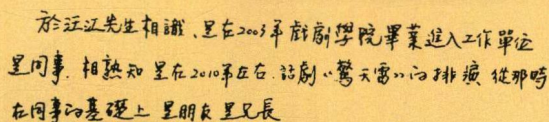 於汪江先生相識、是在2003年戲劇學院畢業進入工作單位
是同事.相熟知 是在2010年左右.話劇《驚天雷》的排演 從那時
在同事的基礎上 是朋友 是兄長